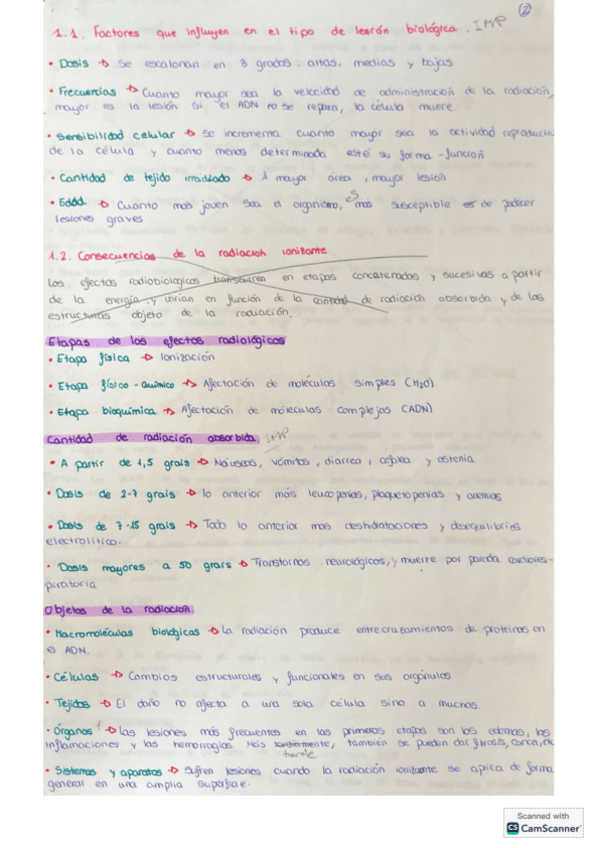 (2)
1.1. Factores que influyen en el tipo de lesión biológica. IMP
• Dosis → Se escalonan en 3 grados: altas, medias y bajas
• Frecuencias → Cuanto mayor sea la velocidad de administración de la radiación,
mayor es la lesión. Si el ADN no se repara, la célula muere.
• Sensibilidad celular → Se incrementa cuanto mayor sea la actividad reproducti
de la célula y cuanto menos determinada esté su forma-función
• Cantidad de tejido irradiado → A mayor área, mayor lesión
• Edad → Cuanto más joven sea el organismo, es más susceptible es de padecer
lesiones graves
1.2. Consecuencias de la radiación ionizante
Los efectos radiobiológicos transcurren en etapas concatenadas y sucesivas a partir
de la energía, y varian en función de la cantidad de radiación absorbida y de las
estructuras objeto de la radiación.
Etapas de los efectos radiológicos
• Etapa física → Ionización
• Etapa físico-química → Afectación de moléculas simples (H2O)
• Etapa bioquímica → Afectación de moléculas complejas (ADN)
Cantidad de radiación absorbida IMP
• A partir de 1,5 grais → Náuseas, vómitos, diarrea, cefalea y astenia.
• Dosis de 2-7 grais → lo anterior más leucopenias, plaquetopenias y anemias
• Dosis de 7-15 grais → Todo lo anterior mas deshidrataciones y desequilibrios
electrolítico.
• Dosis mayores a 50 grais → Transtornos neurológicos, y muerte por parada cardiores-
piratoria
Objetos de la radiación.
• Macromoléculas biológicas → La radiación produce entrecruzamientos de proteinas en
el ADN.
• Células → Cambios estructurales y funcionales en sus orgánulos
• Tejidos → El daño no afecta a una sola célula sino a muchas.
• Órganos → Las lesiones más frecuentes en las primeras etapas son los edemas, las
inflamaciones y las hemorragias. Más tarde, también se pueden dar fibrosis, cancer, etc
• Sistemas y aparatos → Sufren lesiones cuando la radiación ionizante se aplica de forma
general en una amplia superficie.
Scanned with
CS CamScanner